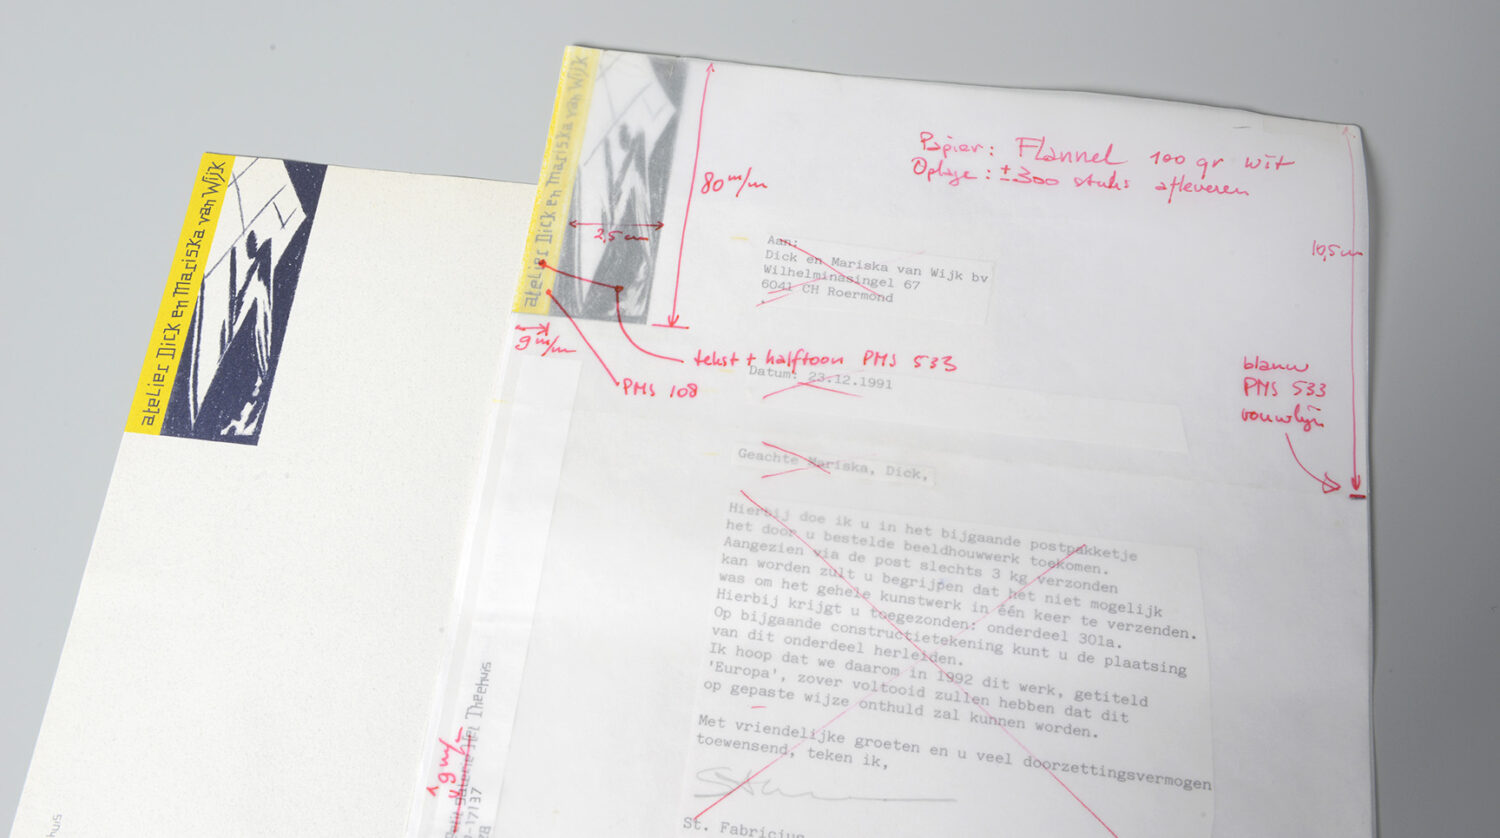 atelier Dick en Mariska van Wijk
atelier Dick en Mariska van Wijk
80 m/m
2,5 cm
9 m/m
Papier: Flannel 100 gr wit
Oplage: ±300 stuks afleveren
10,5 cm
Aan:
Dick en Mariska van Wijk bv
Wilhelminasingel 67
6041 CH Roermond
tekst + halftoon PMS 533
PMS 108
Datum: 23.12.1991
blauw
PMS 533
vouwlijn
Geachte Mariska, Dick,
Hierbij doe ik u in het bijgaande postpakketje
het door u bestelde beeldhouwwerk toekomen.
Aangezien via de post slechts 3 kg verzonden
kan worden zult u begrijpen dat het niet mogelijk
was om het gehele kunstwerk in één keer te verzenden.
Hierbij krijgt u toegezonden: onderdeel 301a.
Op bijgaande constructietekening kunt u de plaatsing
van dit onderdeel herleiden.
Ik hoop dat we daarom in 1992 dit werk, getiteld
'Europa', zover voltooid zullen hebben dat dit
op gepaste wijze onthuld zal kunnen worden.
Met vriendelijke groeten en u veel doorzettingsvermogen
toewensend, teken ik,
St. Fabricius
Galerie Het Theehuis
-17137